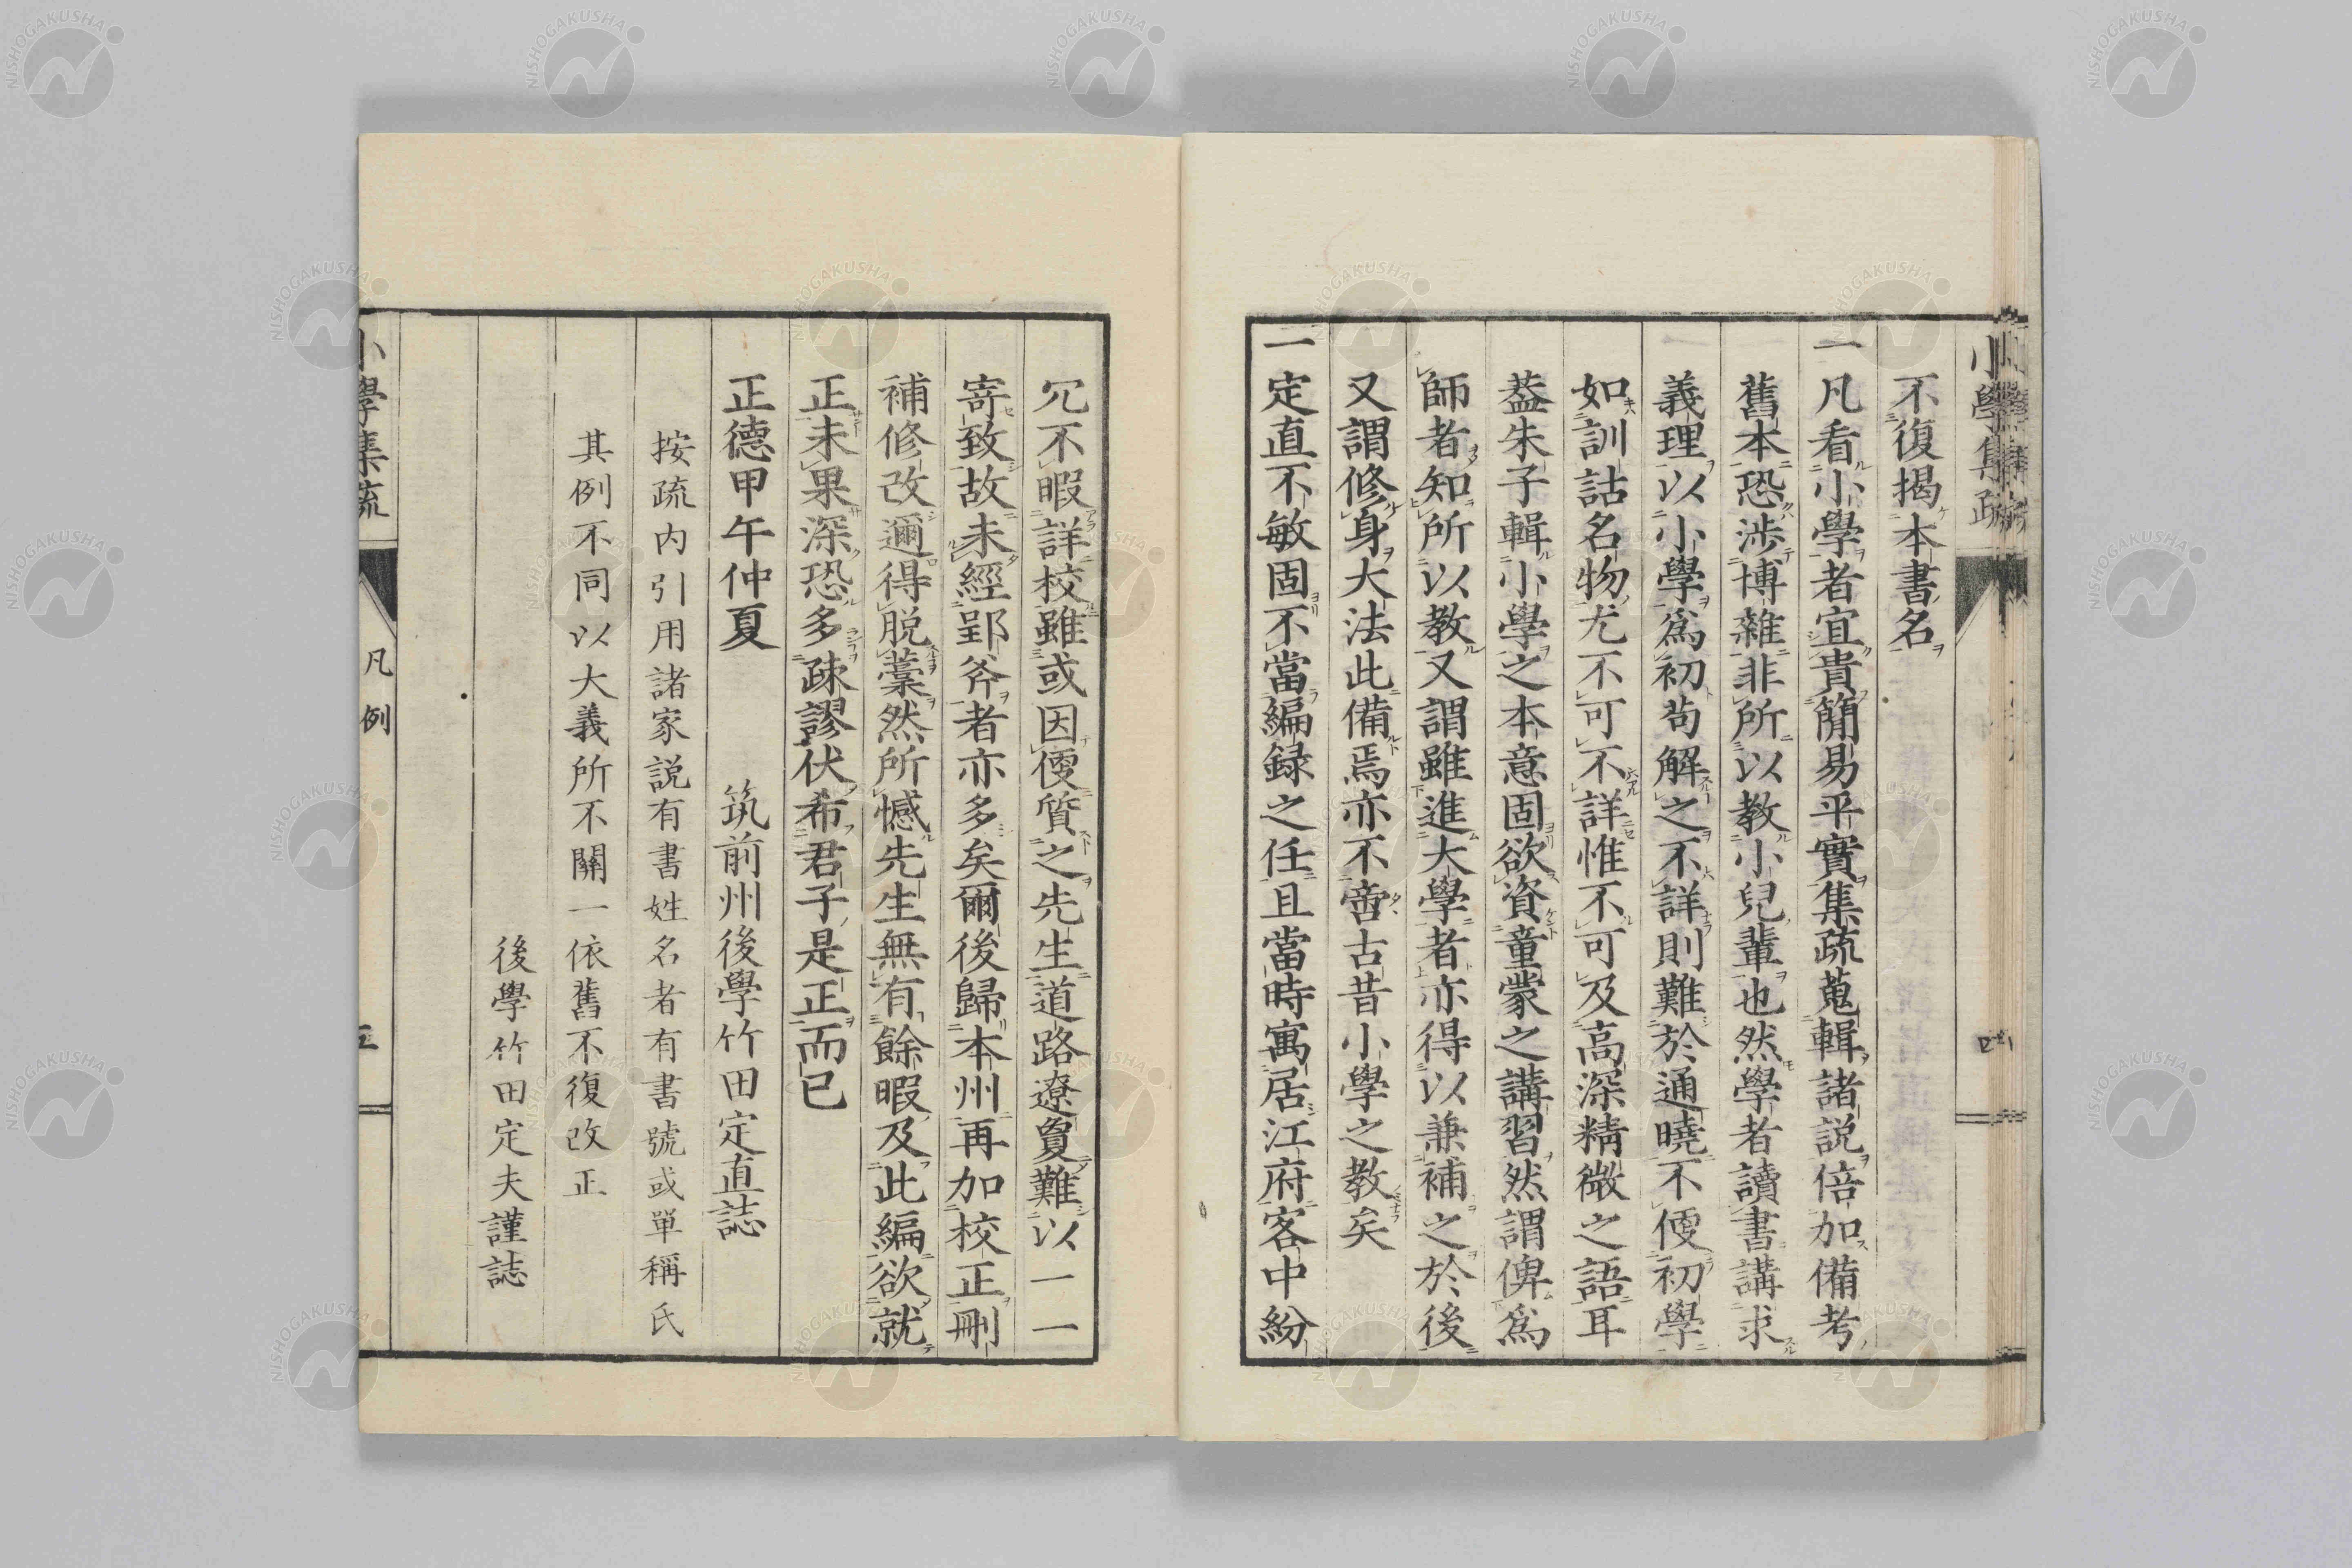 小學集疏
不復揭本書名
一凡看小學者宜貴簡易平實集疏蒐輯諸説倍加備考
舊本恐涉博雜非所以教小兒輩也然學者讀書講求
義理以小學爲初苟解之不詳則難於通曉不便初學
如訓詁名物尤不可不詳惟不可及高深精微之語耳
葢朱子輯小學之本意固欲資童蒙之講習然謂俾爲
師者知所以教又謂雖進大學者亦得以兼補之於後
又謂修身大法此備焉亦不啻古昔小學之教矣
一定直不敏固不當編録之任且當時寓居江府客中紛
冗不暇詳校雖或因便質之先生道路遼敻難以一一
寄致故未經郢斧者亦多矣爾後歸本州再加校正刪
補修改邇得脱藁然所憾先生無有餘暇及此編欲就
正未果深恐多疎謬伏希君子是正而已
正德甲午仲夏 筑前州後學竹田定直誌
按疏内引用諸家説有書姓名者有書號或單稱氏
其例不同以大義所不關一依舊不復改正
後學竹田定夫謹誌
小學集疏 凡例 五